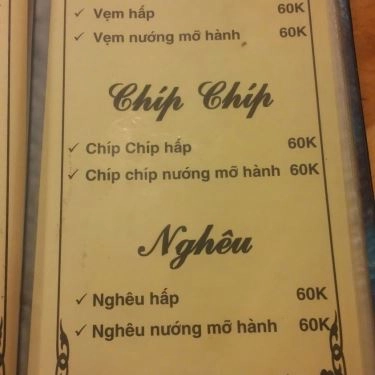 ✓ Vẹm hấp 60K
✓ Vẹm nướng mỡ hành 60K
Chíp Chíp
✓ Chíp Chíp hấp 60K
✓ Chíp chíp nướng mỡ hành 60K
Nghêu
✓ Nghêu hấp 60K
✓ Nghêu nướng mỡ hành 60K